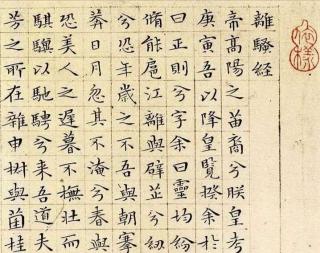 離騷經
帝高陽之苗裔兮朕皇考
庚寅吾以降皇覽揆余於
曰正則兮字余曰靈均紛
脩能扈江離與辟芷兮紉
兮恐年歲之不吾與朝搴
莽日月忽其不淹兮春與
恐美人之遲暮不撫壯而
騏驥以馳騁兮来吾道夫
芳之所在雜申椒與菌桂